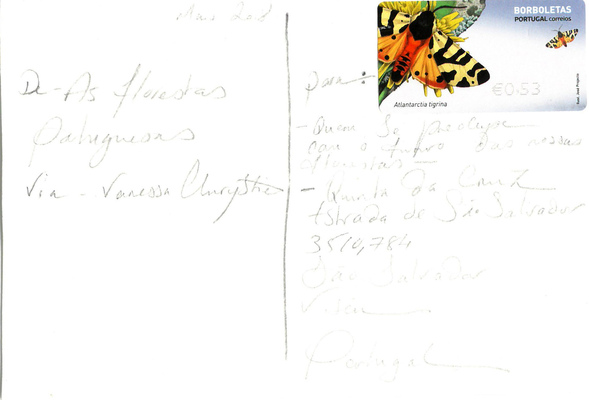 Maio 2018
De - As florestas
Portuguesas
Via - Vanessa Chrystie
BORBOLETAS
PORTUGAL correios
€0.53
Atlantarctia tigrina
para:
- Quem se preocupe
com o futuro das nossas
florestas -
- Quinta da Cruz
Estrada de São Salvador
3510,784
São Salvador
Viseu
Portugal